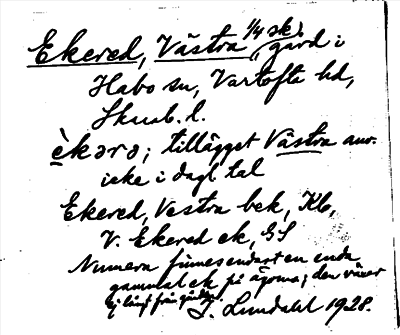 Ekered, Västra, 1/4 sk, gård i
Habo sn, Vartofta hd,
Skarab. l.
èkərə; tillägget Västra anv.
icke i dagl tal
Ekered, Vestra bek, Kb,
V. Ekered ek, GS
Numera finnes endast en enda
gammal ek på ägorna; den växer
ej långt från gården.
J. Lundahl 1928.